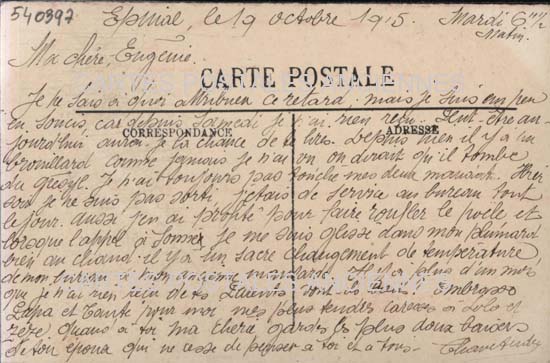 540397
Epinal, le 19 octobre 1915. Mardi 6h 1/2
Matin.
Ma chère Eugénie.
CARTE POSTALE
Je ne sais à quoi attribuer ce retard, mais je suis un peu
en soucis, car depuis Samedi je n'ai rien reçu. Peut-être au-
CORRESPONDANCE
ADRESSE
jourd'hui aurai-je la chance de te lire. Depuis hier il y a un
brouillard comme jamais je n'ai vu on dirait qu'il tombe
du grésil. Je n'ai toujours pas touché mes deux Hier
soir je ne suis pas sorti, j'étais de service au bureau tout
le jour. aussi j'en ai profité pour faire ronfler le poêle et
lorsque l'appel a sonné je me suis glissé dans mon plumard
bien au chaud. il y a un sacré changement de température,
de mon bureau à mon Il y a plus d'un mois
que je n'ai rien reçu de Embrasse
Papa et Tante pour moi mes plus tendres caresses à Lolo et
Zézé, quand à toi ma chère gardes les plus doux baisers
de ton époux qui ne cesse de penser à toi et à tous.